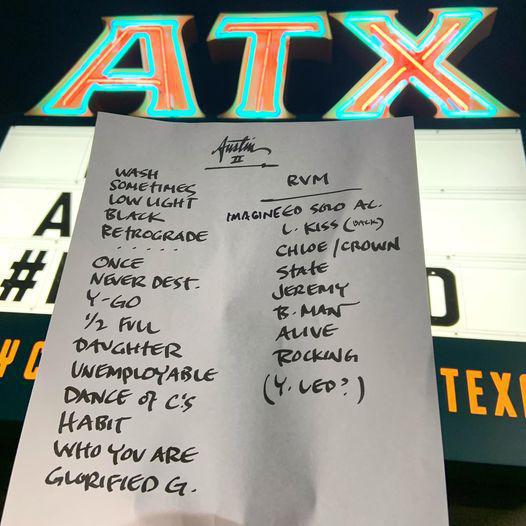 ATX
Austin
II
WASH
SOMETIMES
LOW LIGHT
BLACK
RETROGRADE
. . . . .
ONCE
NEVER DEST.
Y-GO
1/2 FULL
DAUGHTER
UNEMPLOYABLE
DANCE OF C.'S
HABIT
WHO YOU ARE
GLORIFIED G.
RVM
IMAGINE ED SOLO AC.
L. KISS (BACK)
CHLOE / CROWN
STATE
JEREMY
B. MAN
ALIVE
ROCKING
(Y. LED?)